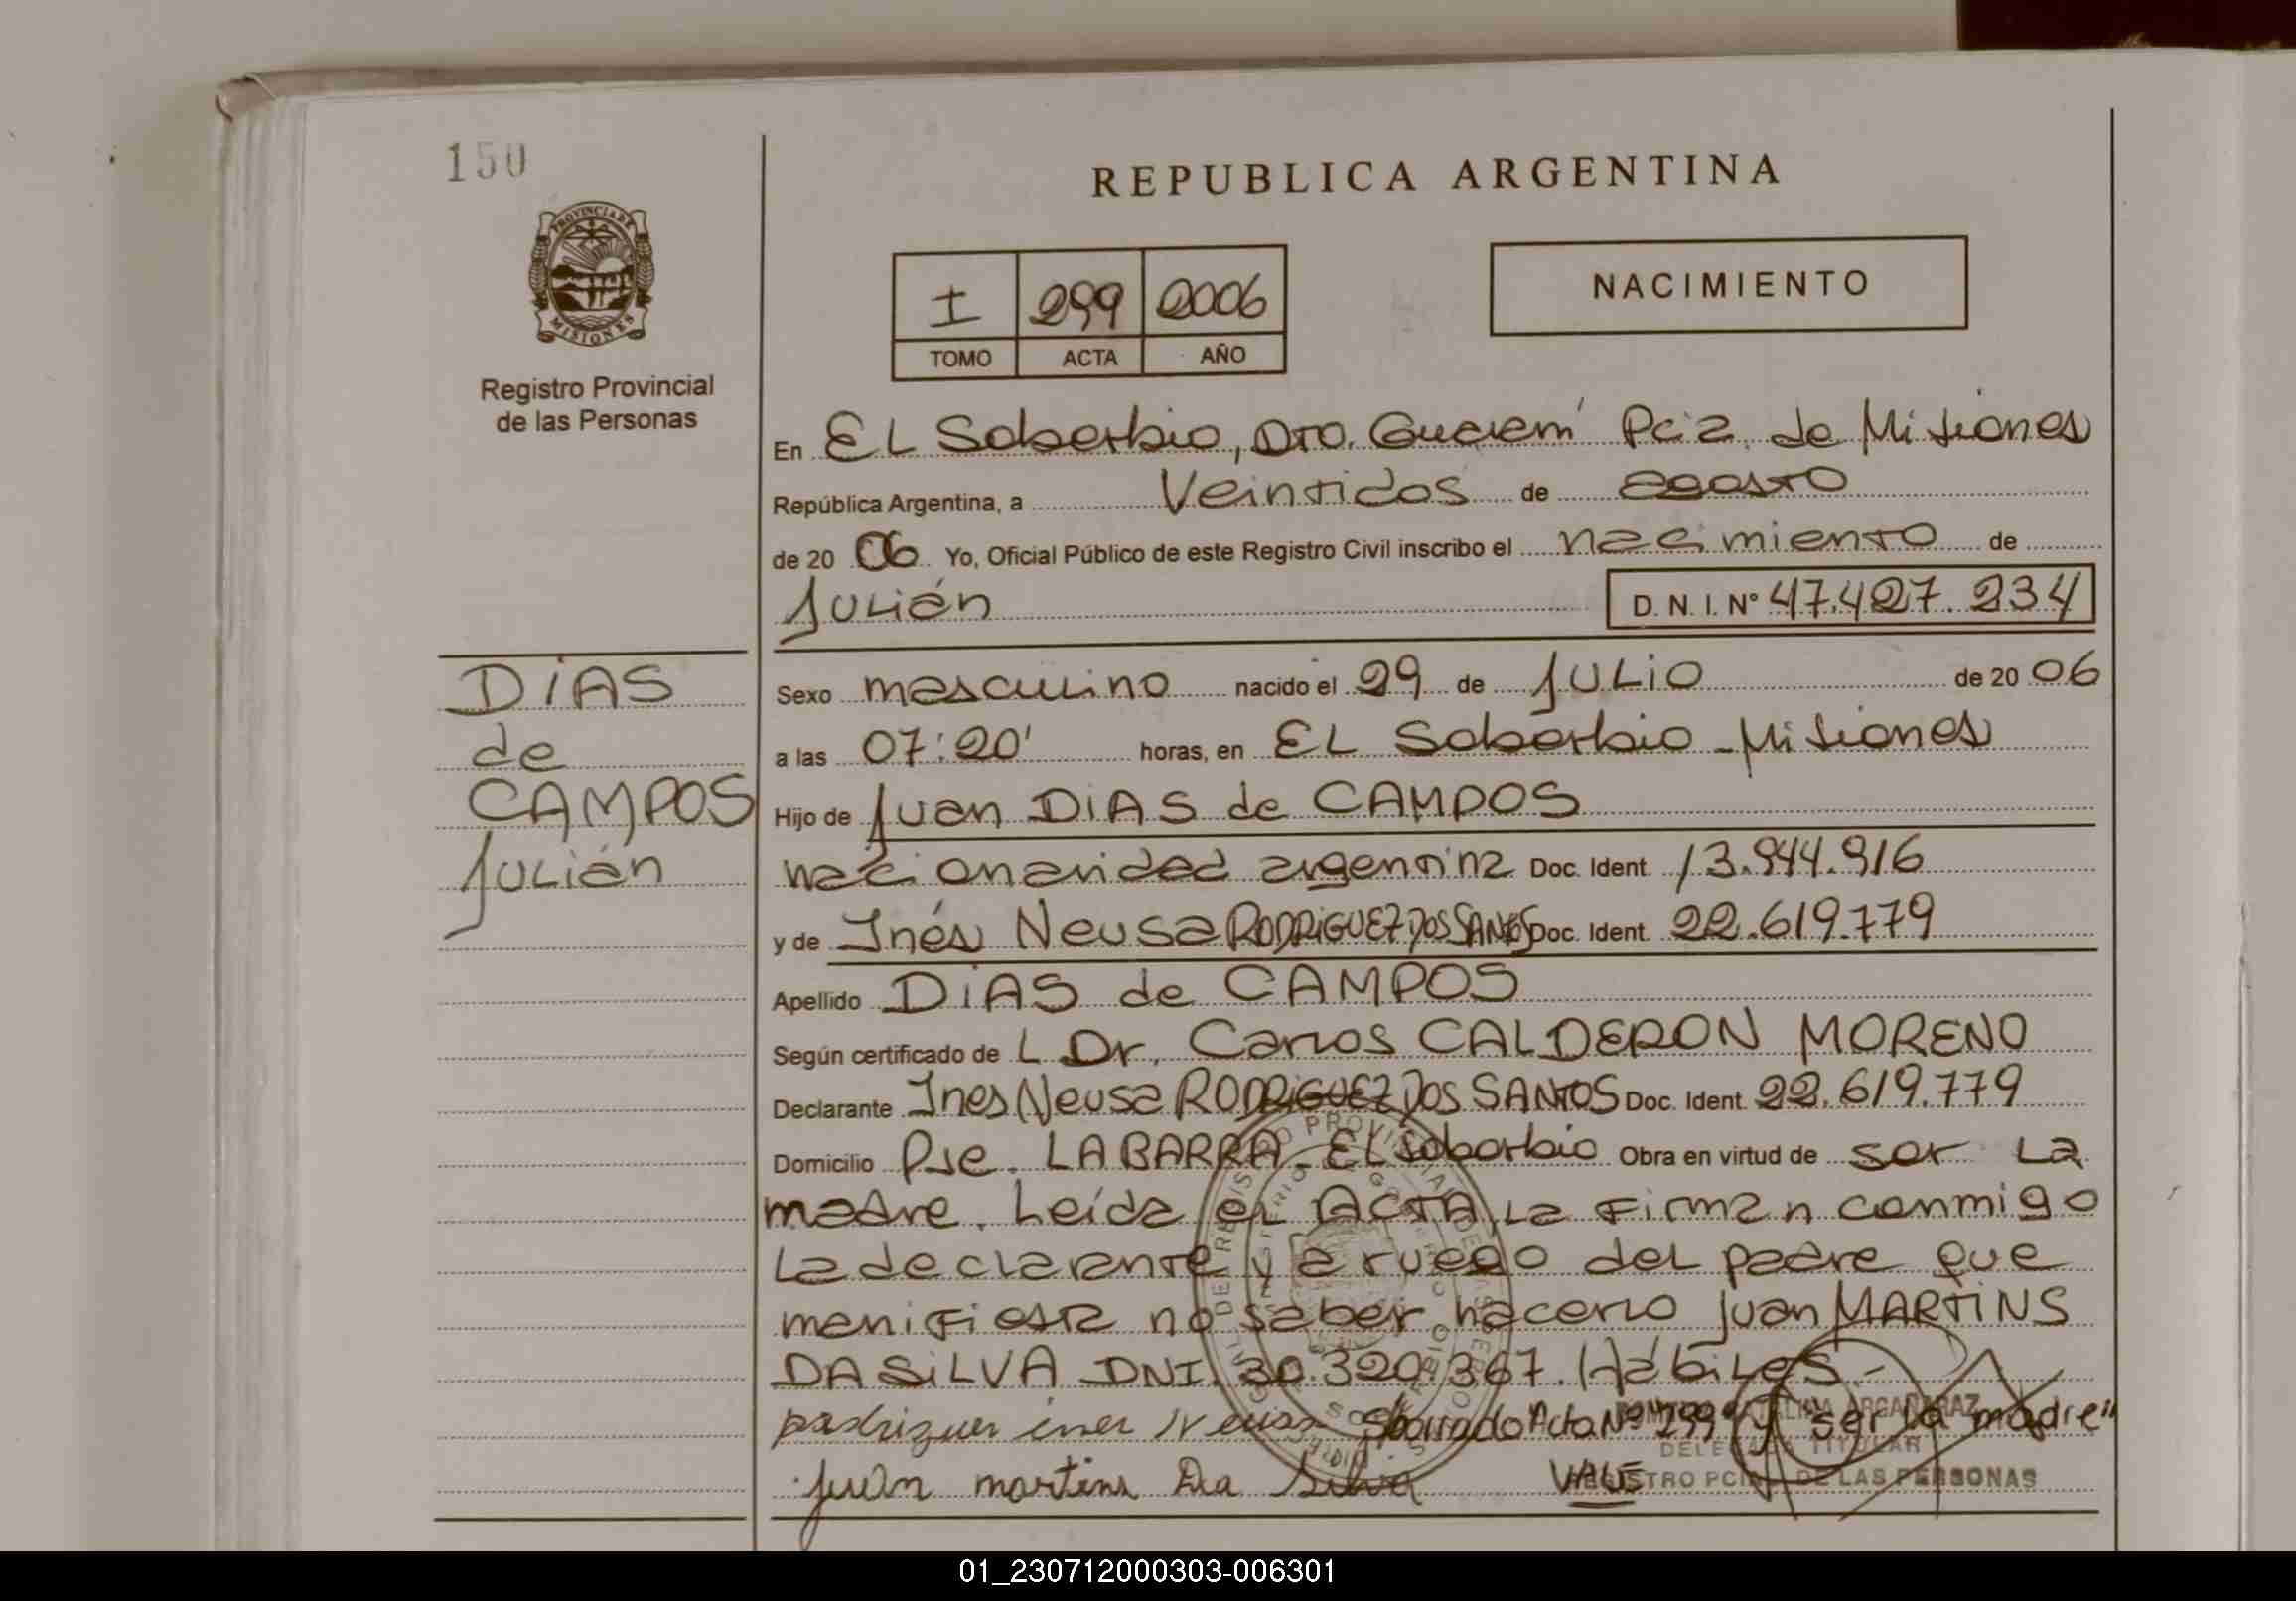 150
PROVINCIA DE
MISIONES
Registro Provincial
de las Personas
REPUBLICA ARGENTINA
I 299 2006
TOMO ACTA AÑO
NACIMIENTO
En EL Soberbio, Dto. Guaraní Pcia. de Misiones
República Argentina, a Veintidos de agosto
de 20 06 Yo, Oficial Público de este Registro Civil inscribo el nacimiento de
Julián D. N. I. Nº 47.427.234
DiAS
de
CAMPOS
Julián
Sexo masculino nacido el 29 de JULiO de 20 06
a las 07:20' horas, en EL Soberbio - Misiones
Hijo de Juan DiAS de CAMPOS
nacionalidad argentina Doc. Ident. 13.944.916
y de Inés Neusa RODRiGUEZ DOS SANTOS Doc. Ident. 22.619.779
Apellido DiAS de CAMPOS
Según certificado de L Dr. Carlos CALDERON MORENO
Declarante Ines Neusa RODRiGUEZ DOS SANTOS Doc. Ident. 22.619.779
Domicilio Pje. LA BARRA - EL Soberbio Obra en virtud de ser La
madre. Leída el ACTA, La Firman conmigo
La declarante y a ruego del padre que
manifiesta no saber hacerlo Juan MARTiNS
DA SiLVA DNI. 30.320.367. Hábiles.-
rodriguez ines Neusa S/borrado Acta Nº "299" y "ser la madre"
Juan martins Da Silva VALE
ARGAÑARAZ
DELEGADA TITULAR
REGISTRO PCIAL. DE LAS PERSONAS
01_230712000303-006301